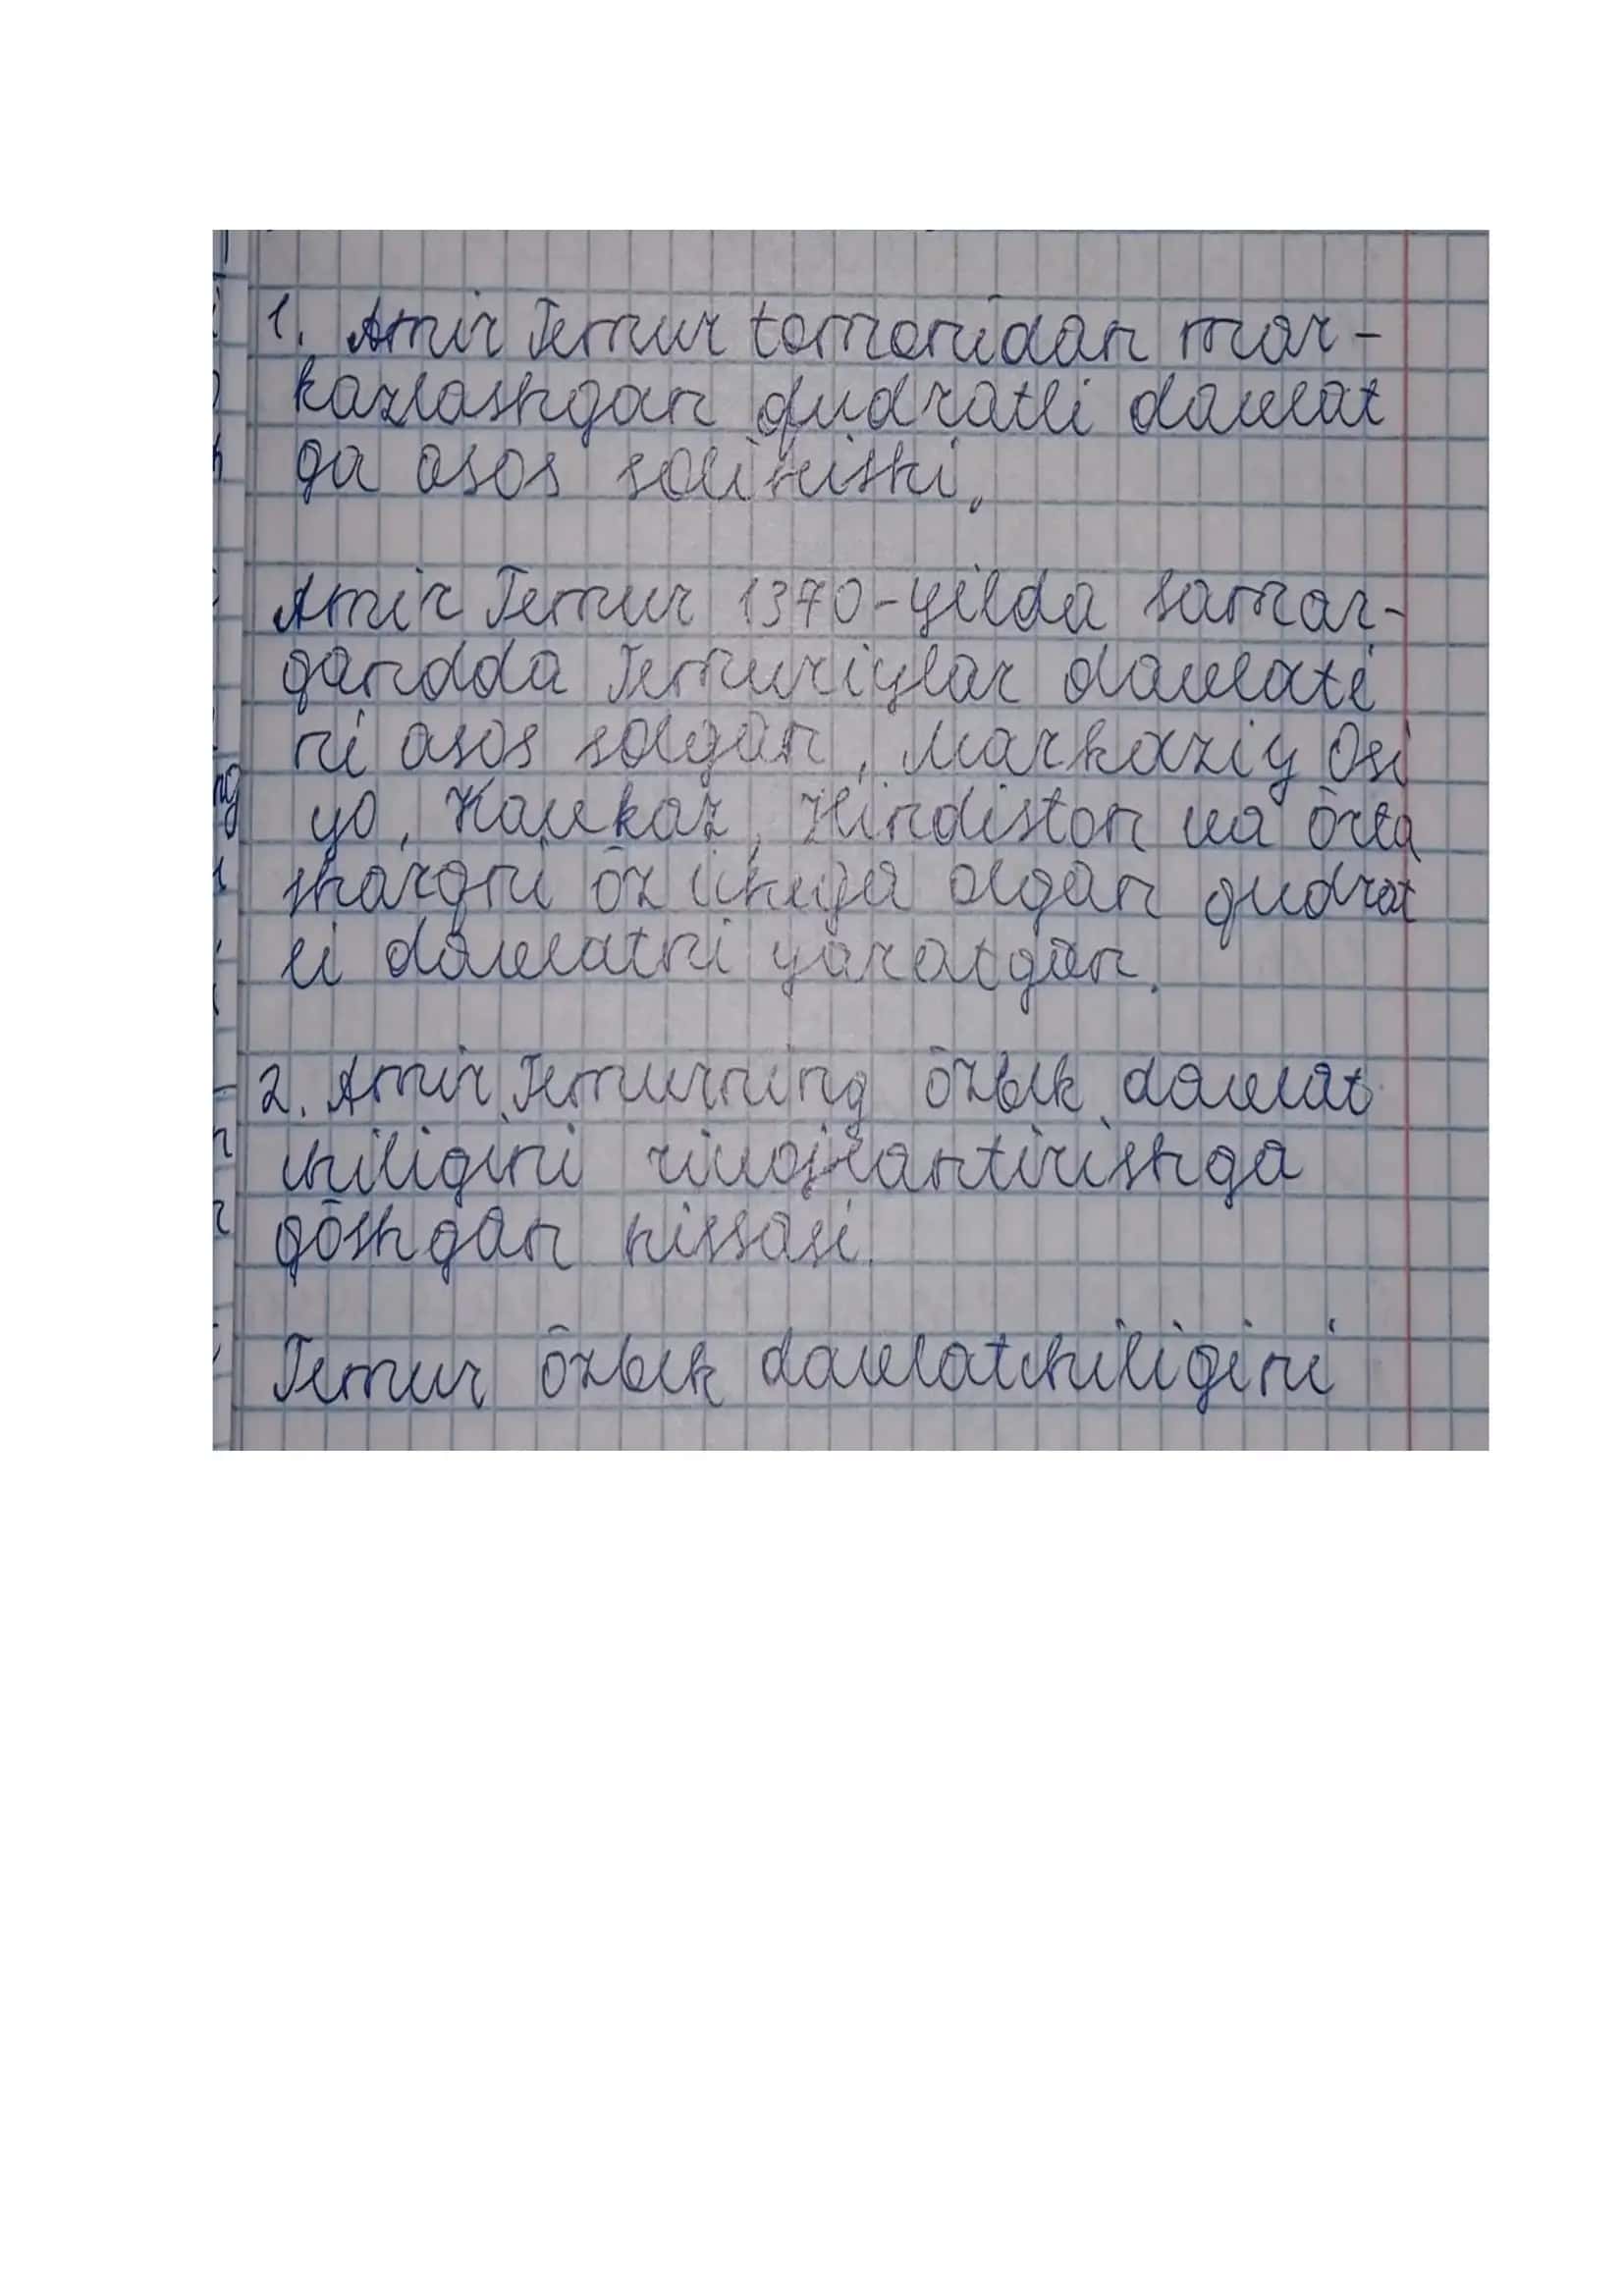 1. Amir Temur tomonidan mar-
kazlashgan qudratli davlat
ga asos solinishi.
Amir Temur 1370-yilda Samar-
qandda Temuriylar davlati
ni asos solgan, Markaziy Osi
yo, Kavkaz, Hindiston va ōrta
sharqni ōz ichiga olgan qudrat
li davlatni yaratgan.
2. Amir Temurning ōzbek davlat
chiligini rivojlantirishga
qōshgan hissasi.
Temur ōzbek davlatchiligini